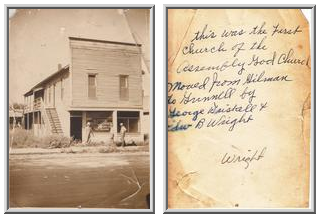 this was the First
Church of the
Assembly God Church
Moved from Gilman
to Grinnell by
George Driskell &
Edw B Wright
Wright